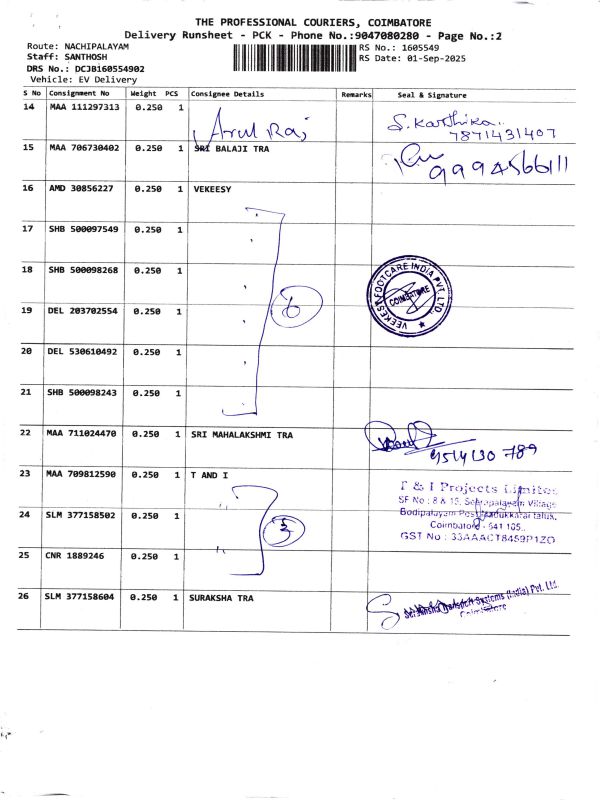 THE PROFESSIONAL COURIERS, COIMBATORE
Delivery Runsheet - PCK - Phone No.:9047080280 - Page No.:2
Route: NACHIPALAYAM
RS No.: 1605549
Staff: SANTHOSH
RS Date: 01-Sep-2025
DRS No.: DCJB160554902
Vehicle: EV Delivery
S No Consignment No Weight PCS Consignee Details Remarks Seal & Signature
14 MAA 111297313 0.250 1 Arul Raj S. Karthika.
7871431407
15 MAA 706730402 0.250 1 SRI BALAJI TRA
9994566111
16 AMD 30856227 0.250 1 VEKEESY
17 SHB 500097549 0.250 1
18 SHB 500098268 0.250 1
6
VEEKESY FOOTCARE INDIA PVT. LTD.
COIMBATORE
19 DEL 203702554 0.250 1
20 DEL 530610492 0.250 1
21 SHB 500098243 0.250 1
22 MAA 711024470 0.250 1 SRI MAHALAKSHMI TRA
9514130 789
23 MAA 709812590 0.250 1 T AND I
T & I Projects Limited
SF No : 8 & 13, Village
24 SLM 377158502 0.250 1 3
Bodipalayam Post, taluk,
Coimbatore - 641 105.
GST No : 33AAACT8459P1ZO
25 CNR 1889246 0.250 1
26 SLM 377158604 0.250 1 SURAKSHA TRA
Transport Systems (India) Pvt. Ltd.
Coimbatore